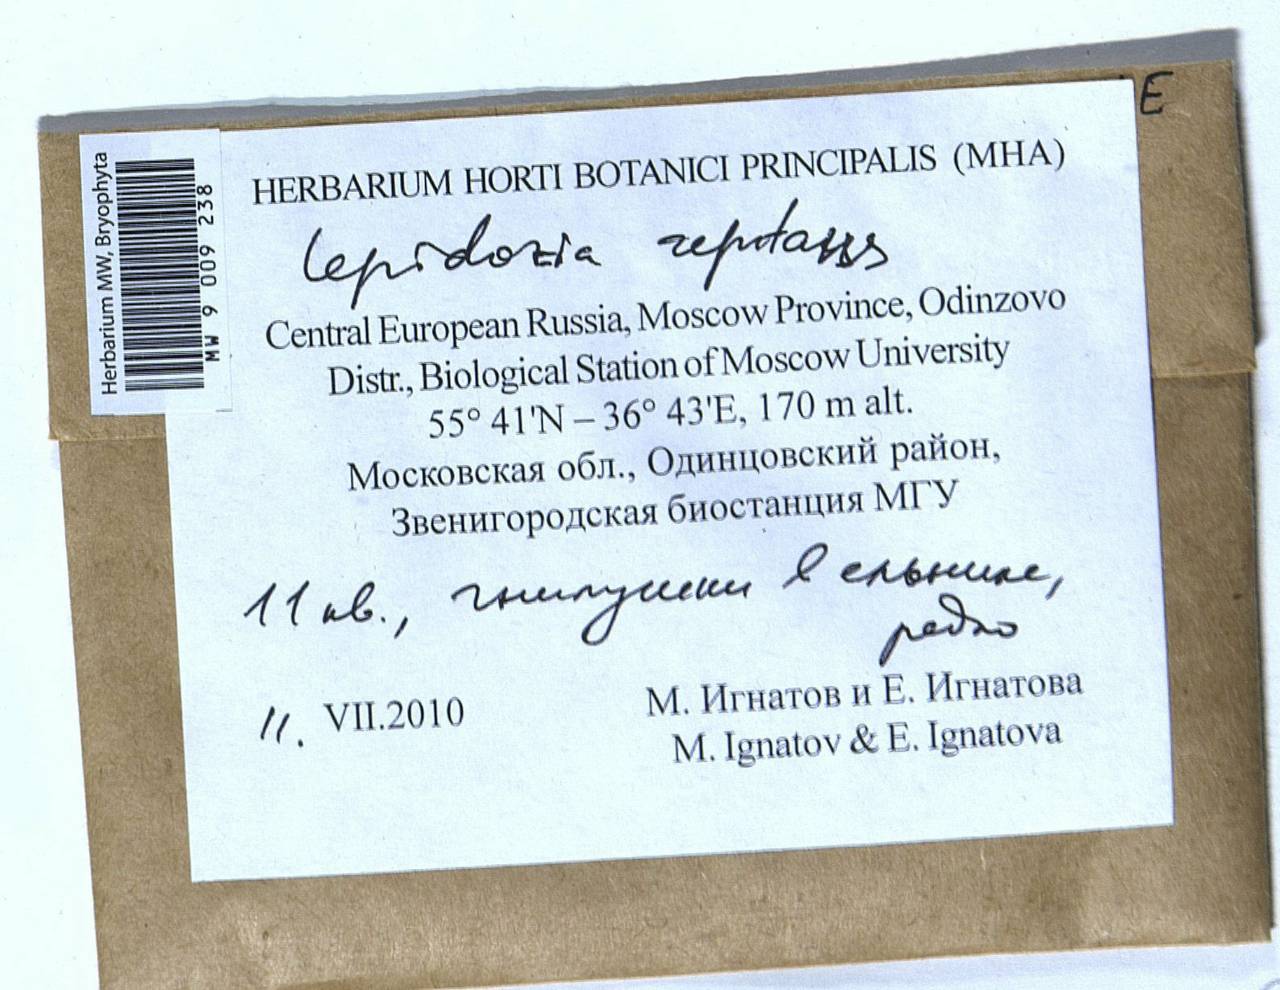 E
Herbarium MW, Bryophyta
MW 9 009 238
HERBARIUM HORTI BOTANICI PRINCIPALIS (MHA)
Lepidozia reptans
Central European Russia, Moscow Province, Odinzovo
Distr., Biological Station of Moscow University
55° 41'N – 36° 43'E, 170 m alt.
Московская обл., Одинцовский район,
Звенигородская биостанция МГУ
11 кв., гнилушки в ельнике,
редко
11. VII.2010
М. Игнатов и Е. Игнатова
M. Ignatov & E. Ignatova